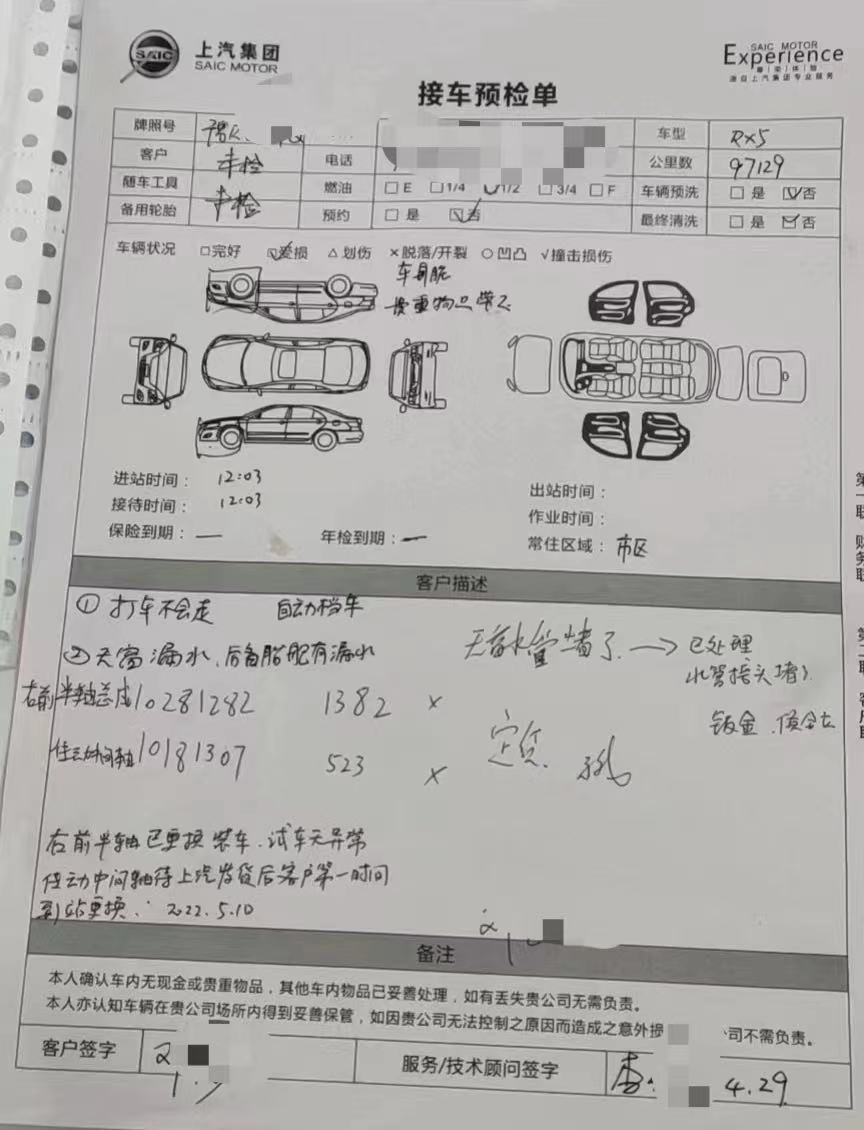 SAIC
上汽集团
SAIC MOTOR
SAIC MOTOR
Experience
源自上汽集团专业服务
接车预检单
牌照号 车型 RX5
客户 未检 电话 公里数 97129
随车工具 燃油 E 1/4 1/2 3/4 F 车辆预洗 是 否
备用轮胎 未检 预约 是 否 最终清洗 是 否
车辆状况 □完好 □爱损 △划伤 ×脱落/开裂 ○凹凸 √撞击损伤
车身脏
贵重物品带走
进站时间： 12:03 出站时间：
接待时间： 12:03 作业时间：
保险到期： — 年检到期：— 常住区域： 市区
客户描述
① 打车不会走 自动档车
② 天窗漏水，后备胎肥有漏水
天窗水管堵了 → 已处理
水管接头堵
钣金
右前半轴总成 10281282 1382 ×
10181307 523 × 定货
右前半轴已更换装车.试车无异常
传动中间轴待上汽发货后客户第一时间
到站更换. 2022.5.10
备注
本人确认车内无现金或贵重物品，其他车内物品已妥善处理，如有丢失贵公司无需负责。
本人亦认知车辆在贵公司场所内得到妥善保管，如因贵公司无法控制之原因而造成之意外损 司不需负责。
客户签字 服务/技术顾问签字 4.29
第一联
财务联
第二联
客户联